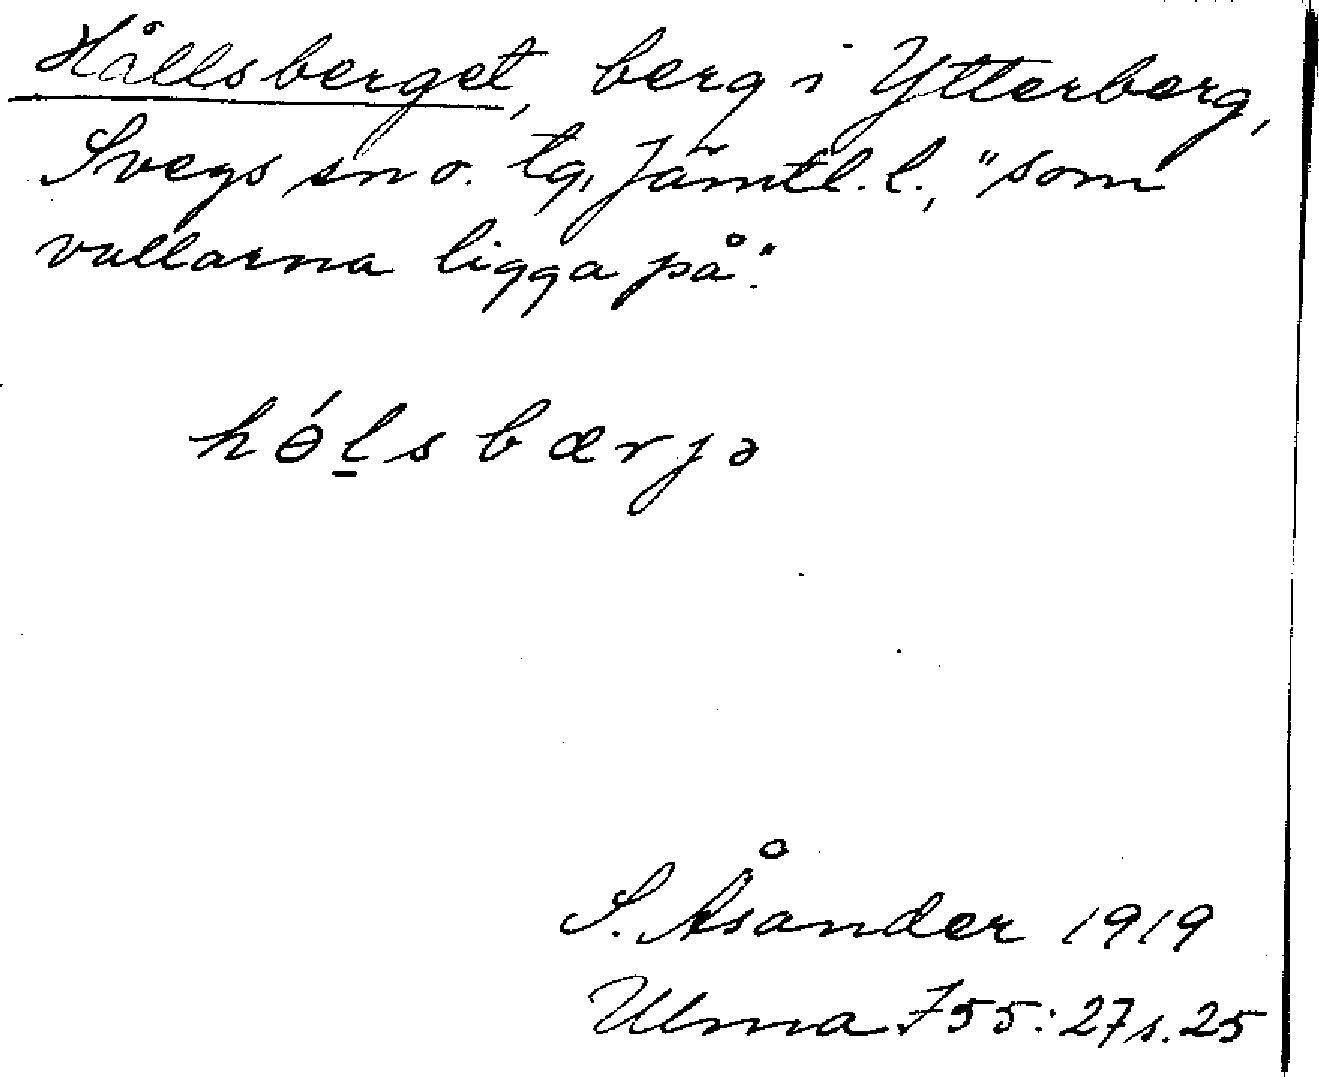 Hållsberget, berg i Ytterberg,
Svegs sn o. tg, Jämtl. l., "som
vallarna ligga på".
hɵ́l̠sbærjə
S. Åsander 1919
Ulma 755:27 s. 25